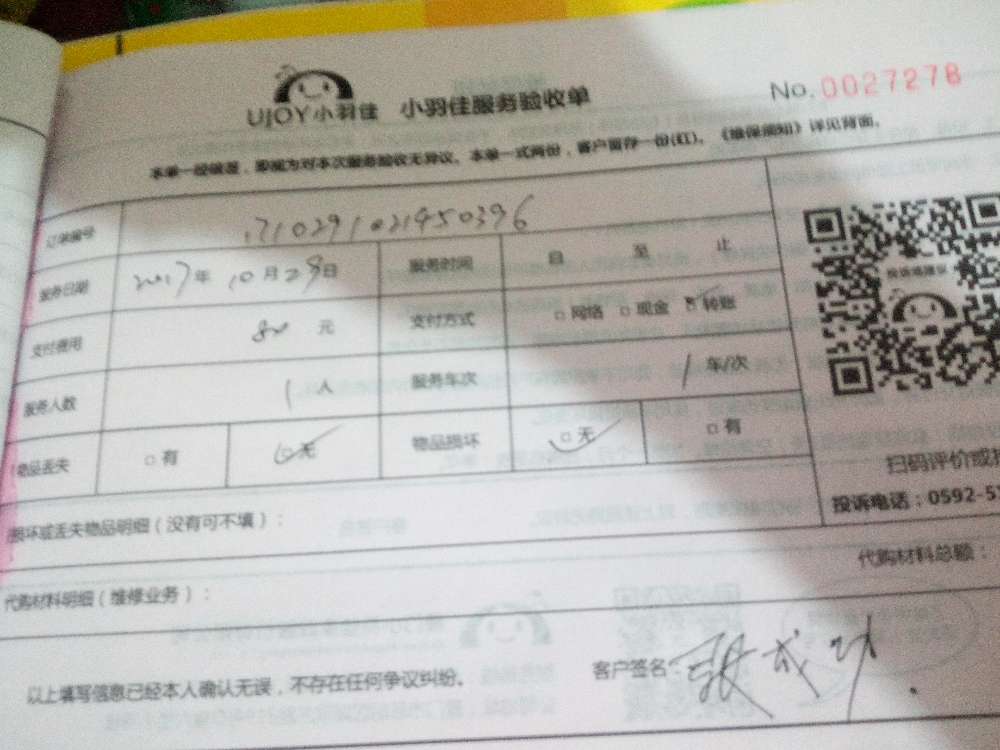 UJOY小羽佳 小羽佳服务验收单 No. 0027278
本单一经填写，即视为对本次服务验收无异议。本单一式两份，客户留存一份(红)。《维保须知》详见背面。
订单编号 1710291021450396
服务日期 2017年 10月29日 服务时间 自 至 止
支付费用 元 支付方式 □网络 □现金 □转账
服务人数 1人 服务车次 1车/次
物品丢失 □有 □无 物品损坏 □无 □有
投诉或建议
扫码评价或
投诉电话：0592-5
损坏或丢失物品明细（没有可不填）：
代购材料明细（维修业务）： 代购材料总额：
以上填写信息已经本人确认无误，不存在任何争议纠纷。 客户签名：张成功